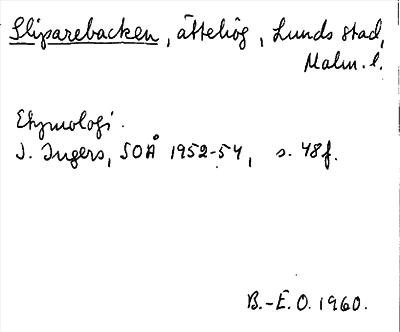 Sliparebacken, ättehög, Lunds stad,
Malm. l.
Etymologi.
I. Ingers, SOÅ 1952-54, s. 48f.
B.-E. O. 1960.